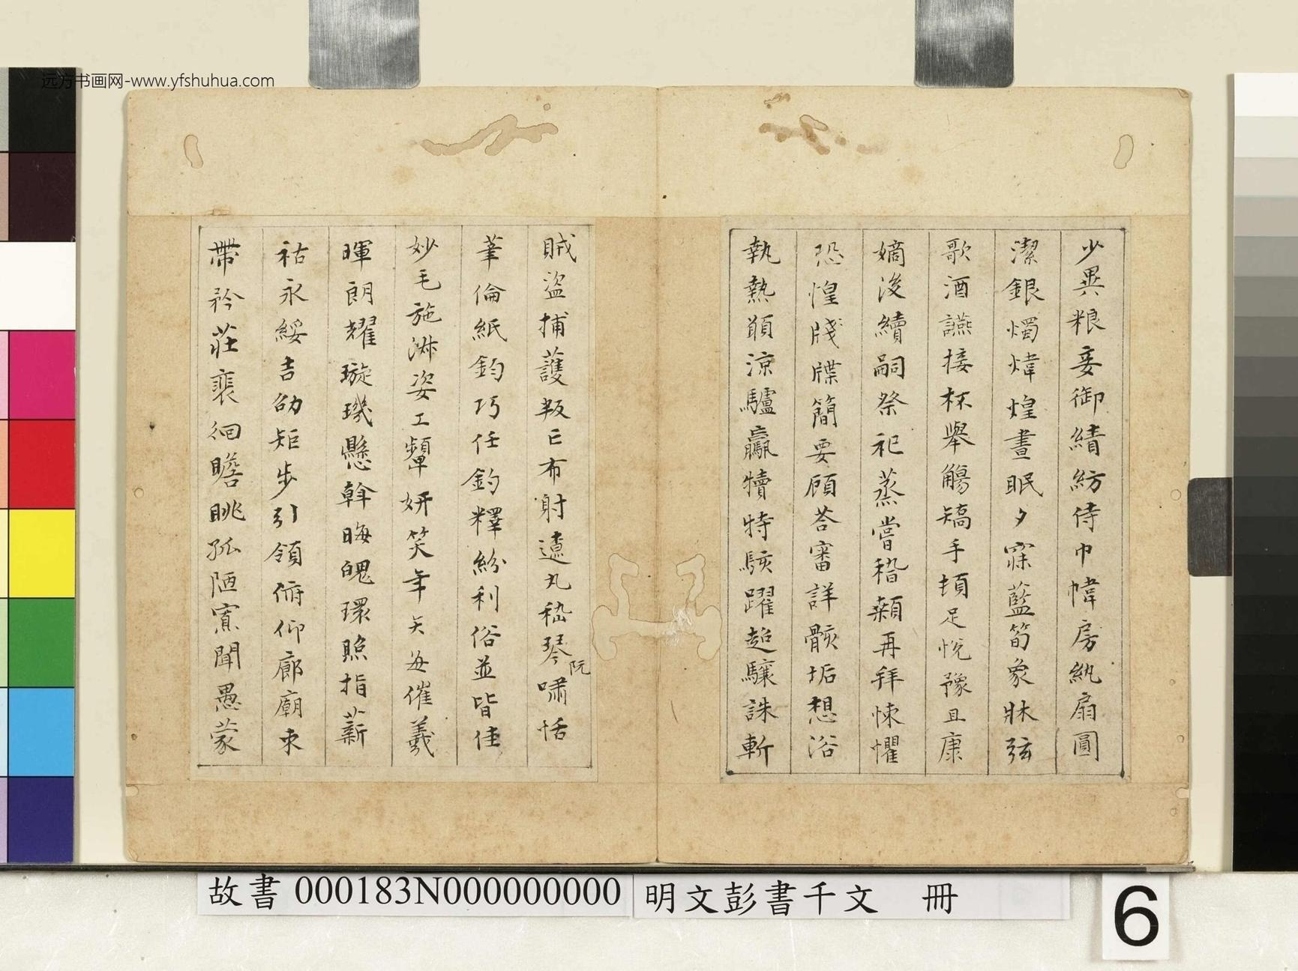 远方书画网-www.yfshuhua.com
少異粮妾御績紡侍巾幃房紈扇圓
潔銀燭煒煌晝眠夕寐藍筍象牀弦
歌酒讌接杯舉觴矯手頓足悅豫且康
嫡後續嗣祭祀蒸嘗稽顙再拜悚懼
恐惶牋牒簡要顧荅審詳骸垢想浴
執熱願涼驢驘犢特駭躍超驤誅斬
賊盜捕獲叛亡布射遼丸嵇琴阮嘯恬
筆倫紙鈞巧任釣釋紛利俗並皆佳
妙毛施淑姿工顰妍笑年矢每催羲
暉朗耀璇璣懸斡晦魄環照指薪
祜永綏吉劭矩步引領俯仰廊廟束
帶矜莊裵徊瞻眺孤陋寡聞愚蒙
故書 000183N000000000 明文彭書千文 冊
6